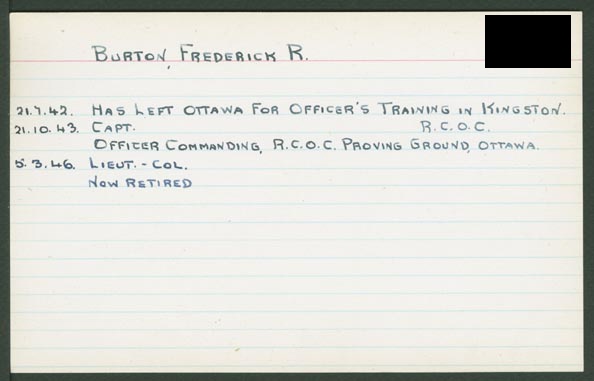 BURTON, FREDERICK R.
21.7.42. HAS LEFT OTTAWA FOR OFFICER'S TRAINING IN KINGSTON.
21.10.43. CAPT. R.C.O.C.
OFFICER COMMANDING, R.C.O.C. PROVING GROUND, OTTAWA.
5.3.46. LIEUT.-COL.
NOW RETIRED